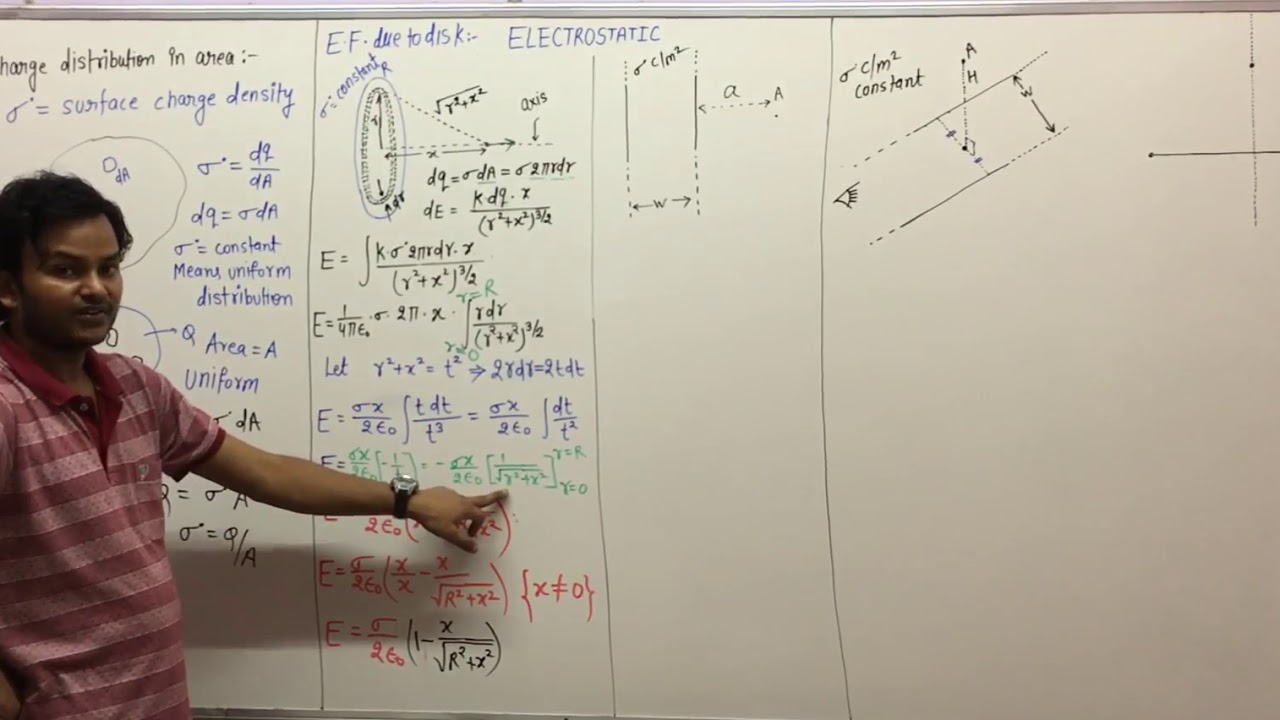 charge distribution in area:-
σ = surface charge density
dA
σ = dq/dA
dq = σdA
σ = constant
Means uniform
distribution
Q
Area = A
Uniform
σ dA
= σ A
σ = Q/A
E.F. due to disk:-
ELECTROSTATIC
σ = constant
R
r
√r²+x²
axis
x
dr
dq = σdA = σ2πrdr
dE = k dq · x/(r²+x²)^3/2
E = ∫ k·σ 2πrdr·x/(r²+x²)^3/2
E = 1/4πε₀ · σ · 2π · x ∫ rdr/(r²+x²)^3/2
r=R
r=0
Let r²+x² = t² ⇒ 2rdr=2tdt
E = σx/2ε₀ ∫ t dt/t³ = σx/2ε₀ ∫ dt/t²
E = σx/2ε₀ [-1/t] = -σx/2ε₀ [1/√r²+x²] r=R r=0
E 2ε₀
E = σ/2ε₀ (x/x - x/√R²+x²) {x≠0}
E = σ/2ε₀ (1 - x/√R²+x²)
σ c/m²
a
A
w
σ c/m²
constant
A
H
w